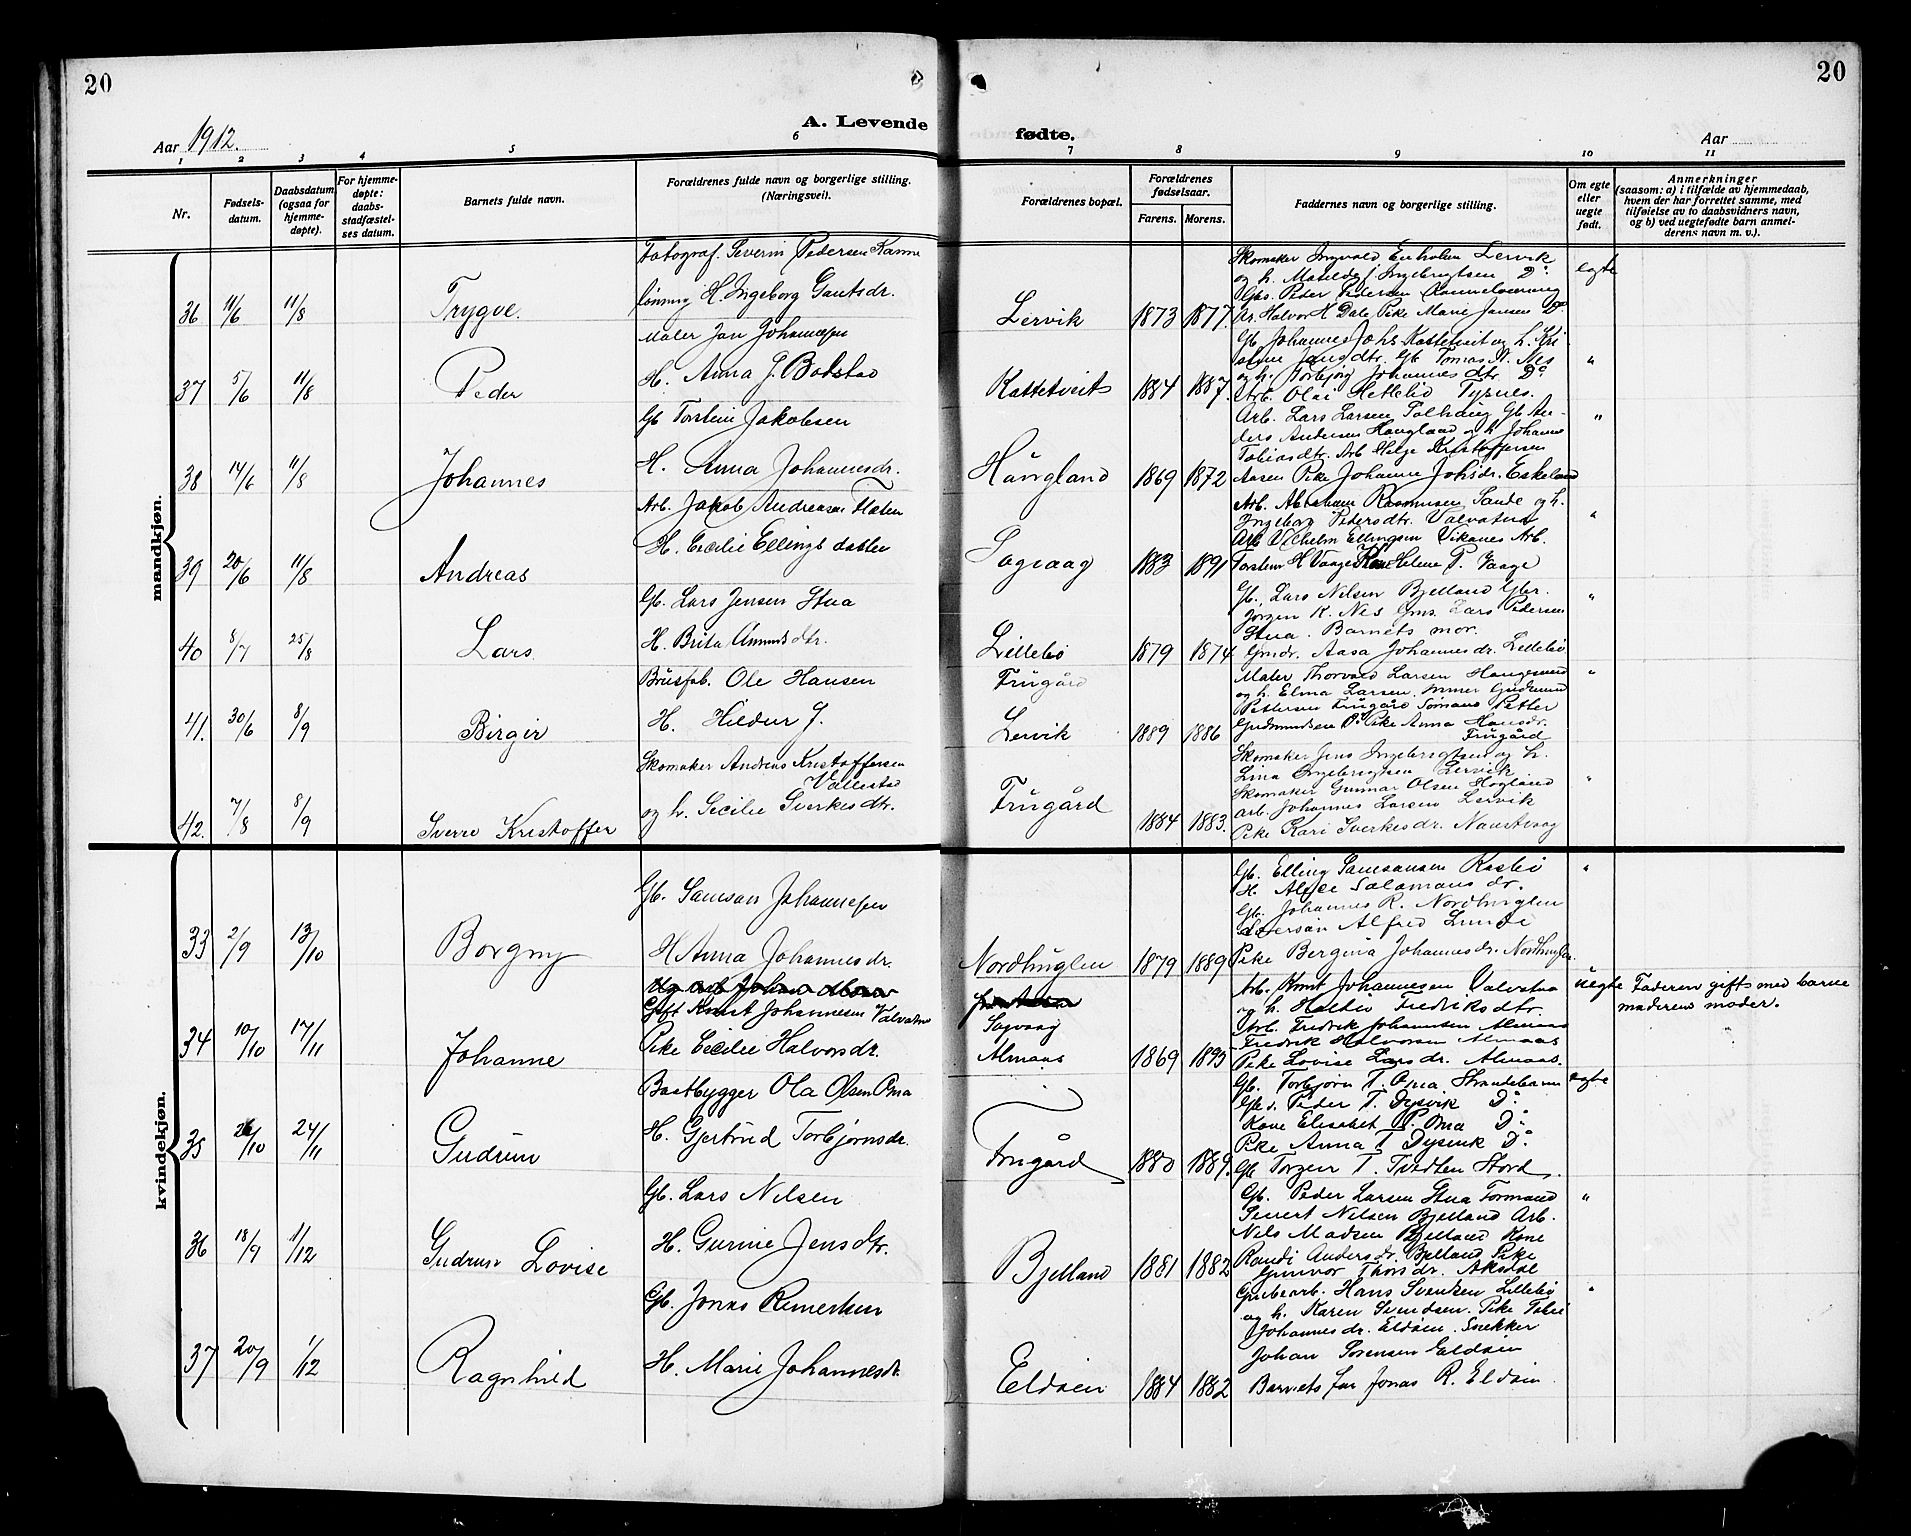 20
20
Aar 1912.
A. Levende
fødte.
Aar
1
2
3
4
5
6
7
8
9
10
11
Nr.
Fødsels-
datum.
Daabsdatum
(ogsaa for
hjemme-
døpte).
For hjemme-
døpte:
daabs-
stadfæstel-
ses datum.
Barnets fulde navn.
Forældrenes fulde navn og borgerlige stilling.
(Næringsvei).
Forældrenes bopæl.
Forældrenes
fødselsaar.
Farens.
Morens.
Faddernes navn og borgerlige stilling.
Om egte
eller
uegte
født.
Anmerkninger
(saasom: a) i tilfælde av hjemmedaab,
hvem der har forrettet samme, med
tilføielse av to daabsvidners navn,
og b) ved uegtefødte barn anmel-
derens navn m. v.).
mandkjøn.
36 11/6 11/8 Trygve.
Fotograf. Severin Pedersen
H. Ingeborg Gautsdr.
Lervik 1873 1877.
Skomaker Ingvald Lervik
og h. Matilde Ingebrigtsen Do
Gbs. Peder Pedersen
Ar. Halvor H Dale, Pike Marie Jansen Do
egte
37 5/6 11/8 Peder
Maler Jan Johannessen
H. Anna J. Botstad
Kattetveit 1884 1887.
Gb Johannes Johs Kattetveit og h. Kri
Gb Tomas N. Nes
og h. Torbjørg Johannesdtr Do
Arb. Olai Hettebø Tysnes.
"
38 14/6 11/8 Johannes
Gb Torstein Jakobsen
H. Anna Johannesdr.
Haugland 1869 1872
Arb. Lars Larsen Gb An-
ders Andersen Haugland og h Johanne
Tobiasdtr. Arb Helge Kristoffersen
Aasen Pike Johanne Johsdr. Eskeland
"
39 20/6 11/8 Andreas
Arb. Jakob Andreasen
H. Cecilie Ellingsdatter
Sagvaag 1883 1891
Arb. Abraham Rasmussen Sande og h.
Ingeborg Pedersdtr. Valvatna
Arb Vilhelm Ellingsen Vikanes Arb.
Torstein H Vaage Kone Helene P. Vaage
"
40 8/7 25/8 Lars
Gb. Lars Jensen Stua
H. Brita Amundsdtr.
Lillebø 1879 1874
Gb. Lars Nilsen Bjelland Gbr.
Jørgen K. Nes Gms. Lars Pedersen
Stua. Barnets mor.
Gmdr. Aasa Johannesdr. Lillebø
"
41. 30/6 8/9 Birgir
Brusfab. Ole Hansen
H. Hildur J.
Frugård
Lervik 1889 1886
Maler Thorvald Larsen Haugesund
og h. Elma Larsen.
Pettersen Frugård Petter
Gudmundsen Do Pike Anna Hansdr.
Frugård
"
42. 7/8 8/9 Sverre Kristoffer
Skomaker Andreas Kristoffersen
Vallestad
og h. Cecilie Sverkesdtr.
Frugård 1884 1883.
Skomaker Jens Ingebrigtsen og h.
Lina Ingebrigtsen Lervik
Skomaker Gunnar Olsen Hogland
arb. Johannes Larsen Lervik
Pike Kari Sverkesdr. Naustvaag
"
kvindekjøn.
33 2/9 13/10 Borgny
Gb. Samson Johannessen
H Anna Johannesdr.
Nordhuglen 1879 1889
Gb. Elling Samsonsen
H. Salamonsdr.
Gb. Johannes R. Nordhuglen
Alfred Lunde
Pike Bergina Johannesdr. Nordhuglen.
"
34 10/10 17/11 Johanne
Gift Knut Johannesen Valvatna
Pike Cecilie Halvorsdr.
Sagvaag
Almaas 1869 1893
Arb. Knut Johannesen Valvatna
og h. Fredriksdtr.
Arb. Fredrik Johannesen Almaas
Fredrik Halvorsen Almaas
Pike Lovise Larsdr. Almaas.
uegte Faderen gifts med barne
maderens moder.
35 26/10 24/11 Gudrun
Baatbygger Ola Olsen Oma
H. Gjertrud Torbjørnsdr.
Frugård 1880 1889.
Gb. Torbjørn T. Oma Strandebarm
Gbs. Peder T. Dysvik Do
Kone Elisabet P. Oma Do
Pike Anna T Dysvik Do
Gb Torger T. Stord
egte
36 18/9 1/12 Gudrun Lovise
Gb. Lars Nilsen
H. Gurine Jensdtr.
Bjelland 1881 1882
Gb. Peder Larsen Stua Formand
Sivert Nilsen Bjelland Arb.
Nils Madsen Bjelland Kone
Randi Andersdr. Bjelland Pike
Gunvor Thorsdr. Aksdal
"
37 20/9 1/12 Ragnhild
Gb. Jonas Reinertsen
H. Marie Johannesdt.
Eldøen 1884 1882
Grubearb. Hans Svendsen Lillebø
og h. Karen Svendsen. Pike
Johannesdr. Eldøen. Snekker
Johan Sørensen Eldøen
Barnets far Jonas R. Eldøen
"